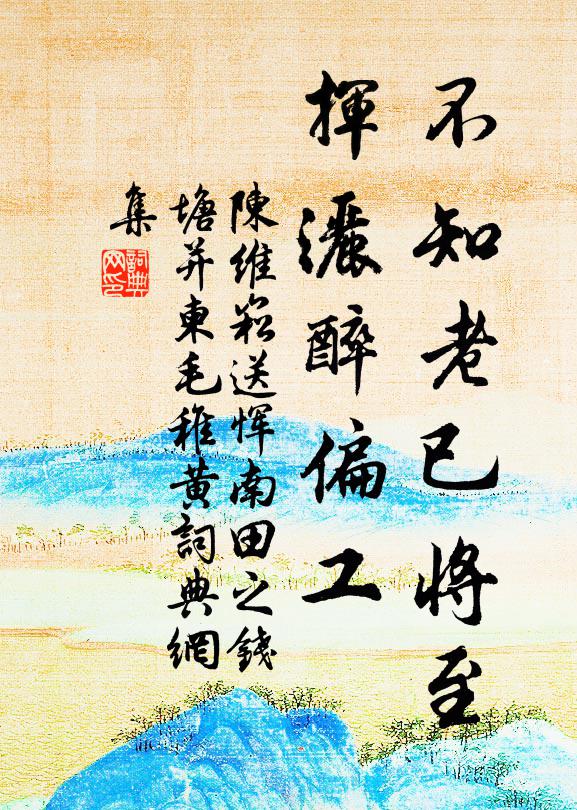 不知老已將至
揮灑醉偏工
陳維崧送惲南田之錢
塘并柬毛稚黃詞典網
集
詞典
网印